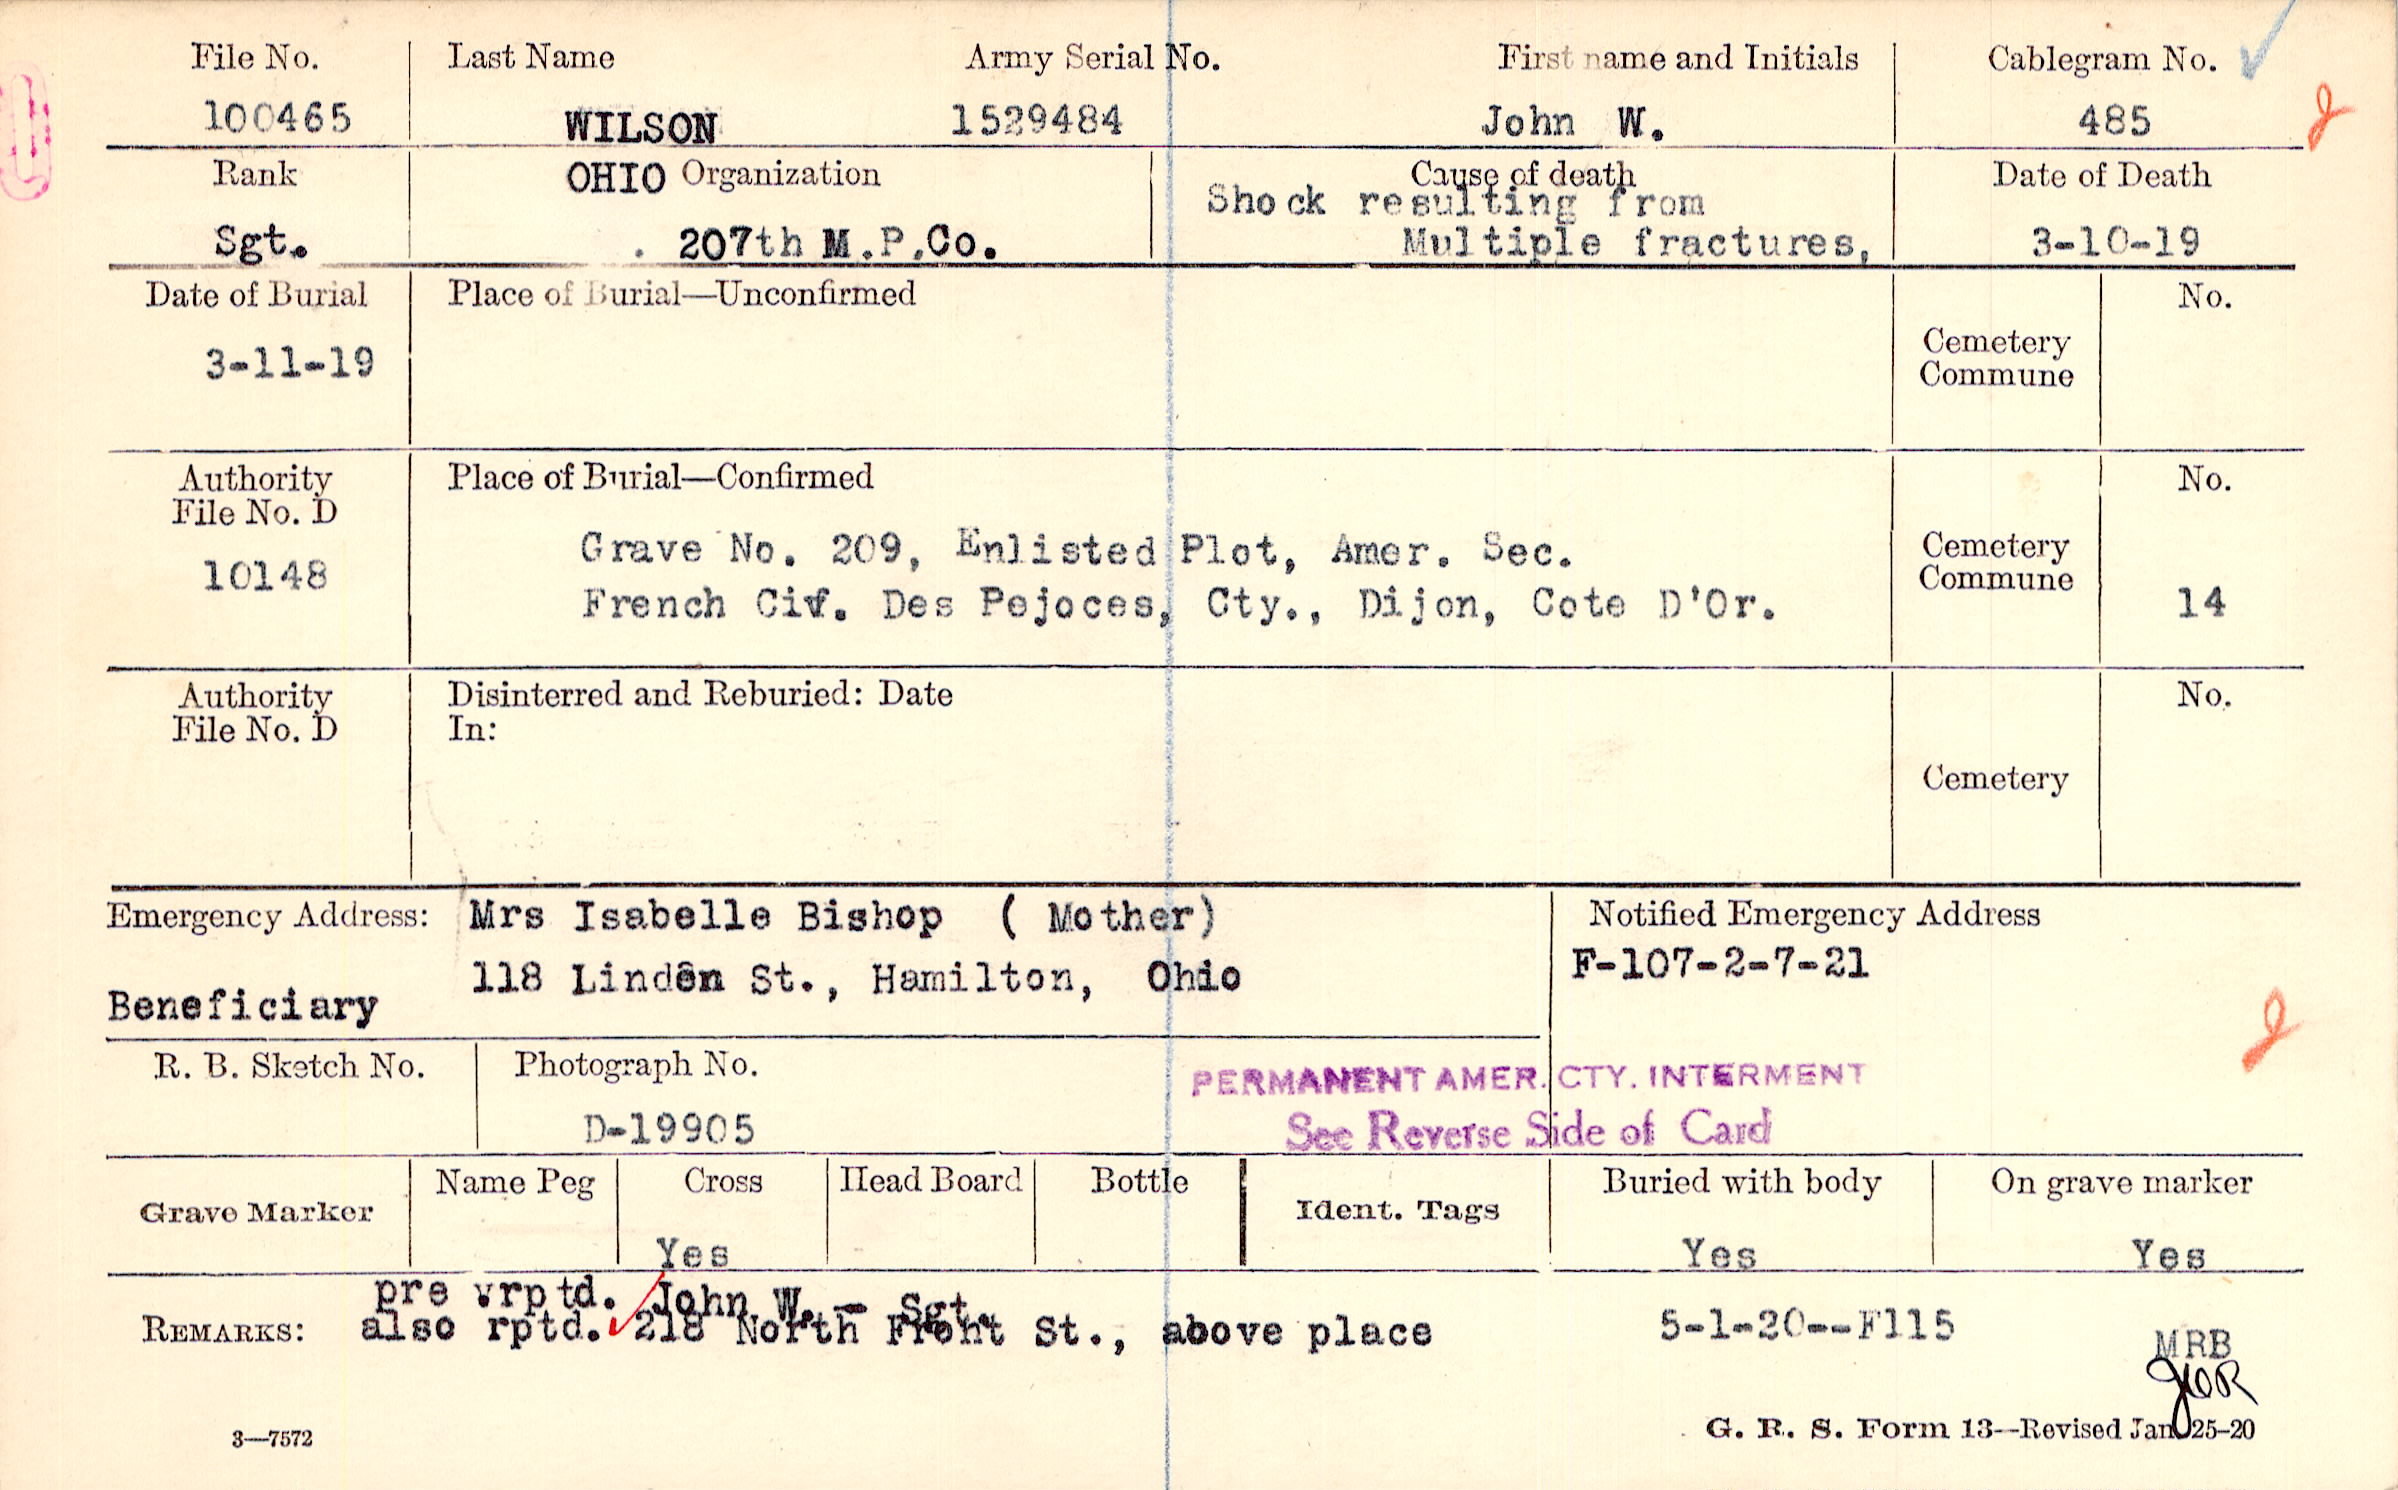 File No. Last Name Army Serial No. First name and Initials Cablegram No.
100465 WILSON 1529484 John W. 485
Rank OHIO Organization Cause of death Date of Death
Shock resulting from
Sgt. . 207th M.P.Co. Multiple fractures, 3-10-19
Date of Burial Place of Burial—Unconfirmed No.
3-11-19 Cemetery
Commune
Authority Place of Burial—Confirmed No.
File No. D
10148 Grave No. 209, Enlisted Plot, Amer. Sec. Cemetery
Commune
French Civ. Des Pejoces, Cty., Dijon, Cote D'Or. 14
Authority Disinterred and Reburied: Date No.
File No. D In:
Cemetery
Emergency Address: Mrs Isabelle Bishop ( Mother) Notified Emergency Address
118 Linden St., Hamilton, Ohio F-107-2-7-21
Beneficiary
R. B. Sketch No. Photograph No. PERMANENT AMER. CTY. INTERMENT
D-19905 See Reverse Side of Card
Grave Marker Name Peg Cross Head Board Bottle Ident. Tags Buried with body On grave marker
Yes Yes Yes
pre vrptd. John W. - Sgt.
REMARKS: also rptd. 218 North Front St., above place 5-1-20--F115
MRB
JOR
3—7572 G. R. S. Form 13—Revised Jan 25-20